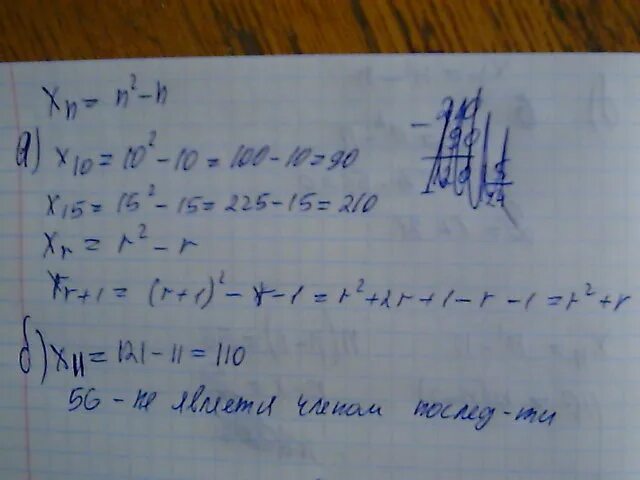 xₙ = n² - n
а) x₁₀ = 10² - 10 = 100 - 10 = 90
x₁₅ = 15² - 15 = 225 - 15 = 210
xᵣ = r² - r
xᵣ₊₁ = (r+1)² - r - 1 = r² + 2r + 1 - r - 1 = r² + r
б) x₁₁ = 121 - 11 = 110
56 - не является членом послед-ти